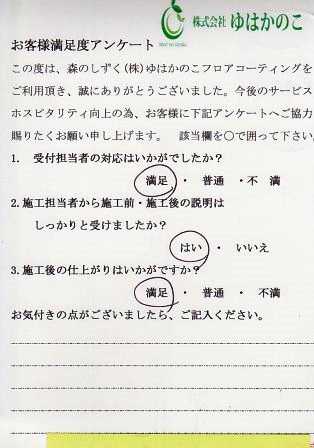 株式会社 ゆはかのこ
お客様満足度アンケート
この度は、森のしずく(株)ゆはかのこフロアコーティングを
ご利用頂き、誠にありがとうございました。今後のサービス
ホスピタリティ向上の為、お客様に下記アンケートへご協力
賜りたくお願い申し上げます。 該当欄を〇で囲って下さい
1. 受付担当者の対応はいかがでしたか?
満足 ・ 普通 ・不 満
2.施工担当者から施工前・施工後の説明は
しっかりと受けましたか?
はい ・ いいえ
3.施工後の仕上がりはいかがですか?
満足 ・ 普通 ・ 不満
お気付きの点がございましたら、ご記入ください。